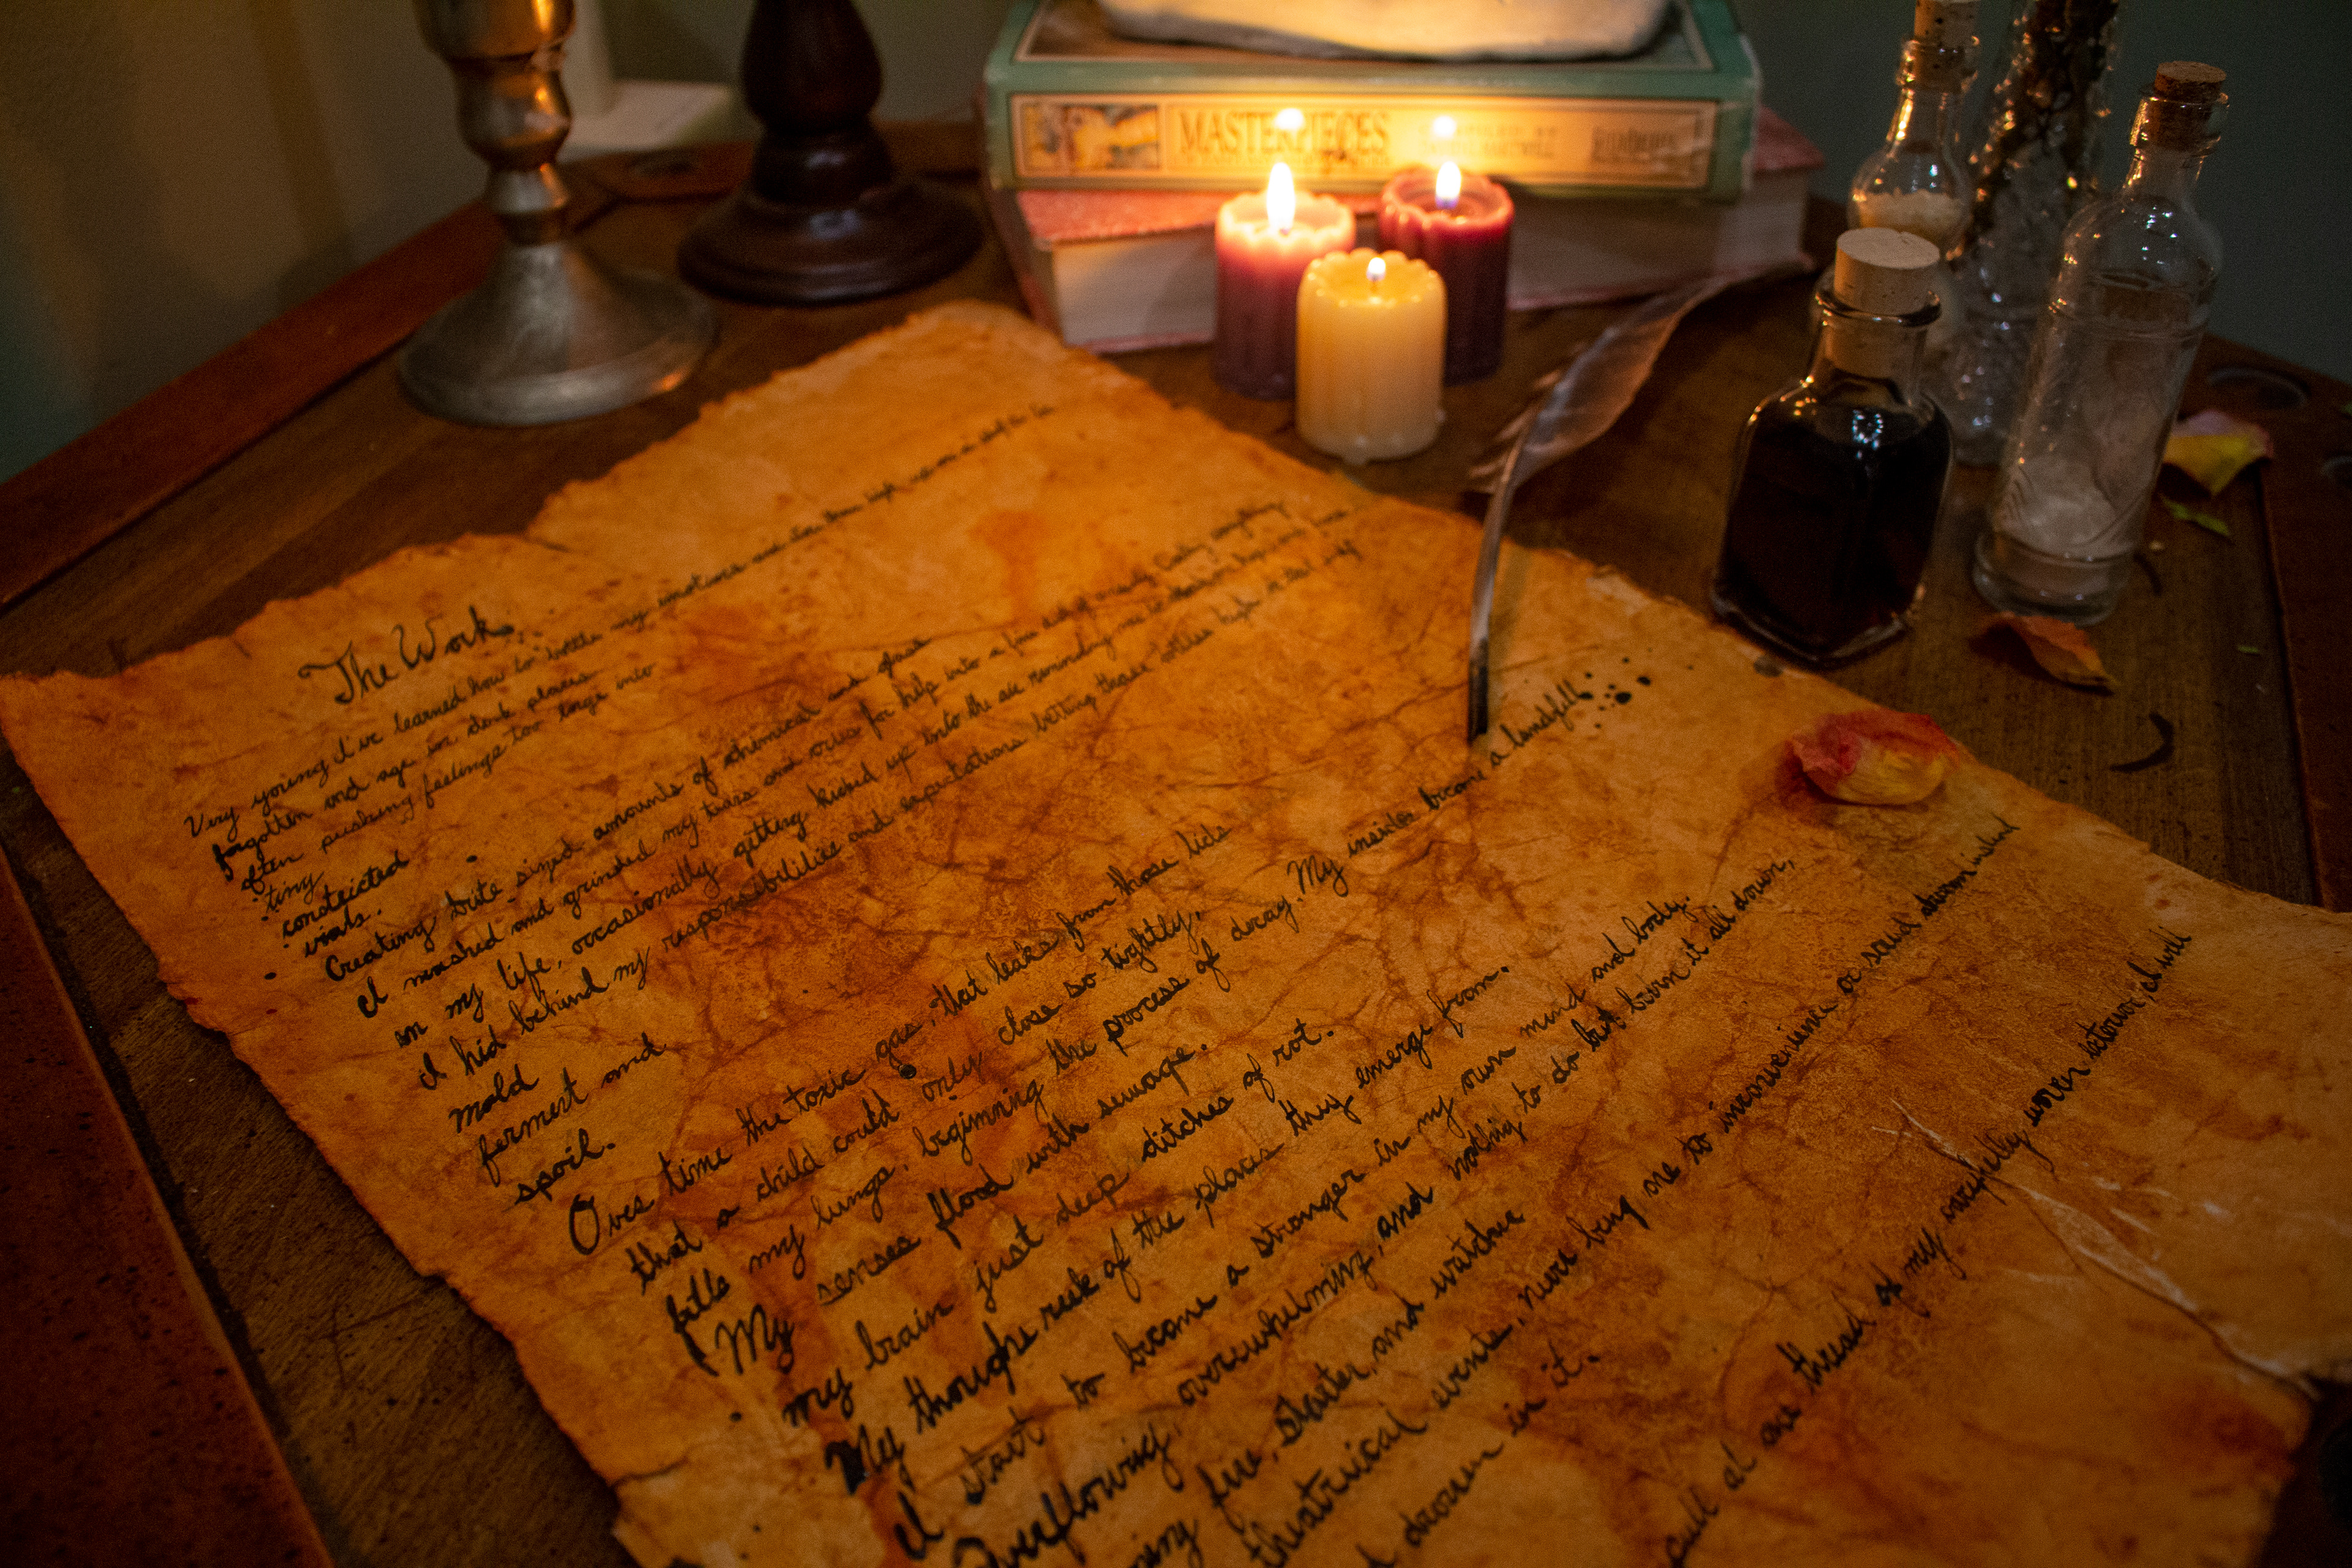 MASTERPIECES
COMPILED BY
The Work.
Very young I've learned how to bottle my emotions and store them high up on a shelf to be
forgotten and age in dark places
often pushing feelings too large into
tiny
constricted
vials.
Creating bite sized amounts of chemical and glass
I mashed and grinded my tears and cries for help into a fine dust of anxiety Coating everything
in my life, occasionally getting kicked up into the air reminding me
I hid behind my responsibilities and expectations letting those bottles high on that shelf
mold
ferment and
spoil.
Over time the toxic gas, that leaks from those lids
that a child could only close so tightly,
fills my lungs, beginning the process of decay. My insides become a landfill.
My senses flood with sewage.
my brain just deep ditches of rot.
My thoughs reek of the places they emerge from.
I start to become a stranger in my own mind and body.
Overflowing, overwhelming, and nothing to do but burn it all down,
fire, shatter, and watches
theatrical events, never being one to inconvenience or
drown in it.
pull at one thread of my carefully woven exterior, I will